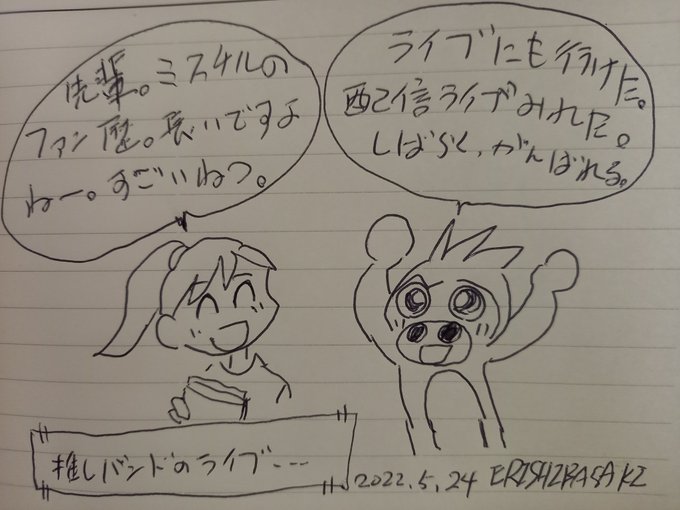 先輩。ミスチルの
ファン歴。長いですよ
ねー。すごいねつ。
ライブにも行けた。
配信ライブみれた。
しばらく、がんばれる。
推しバンドのライブ---
2022.5.24 ERISHIBASAKI